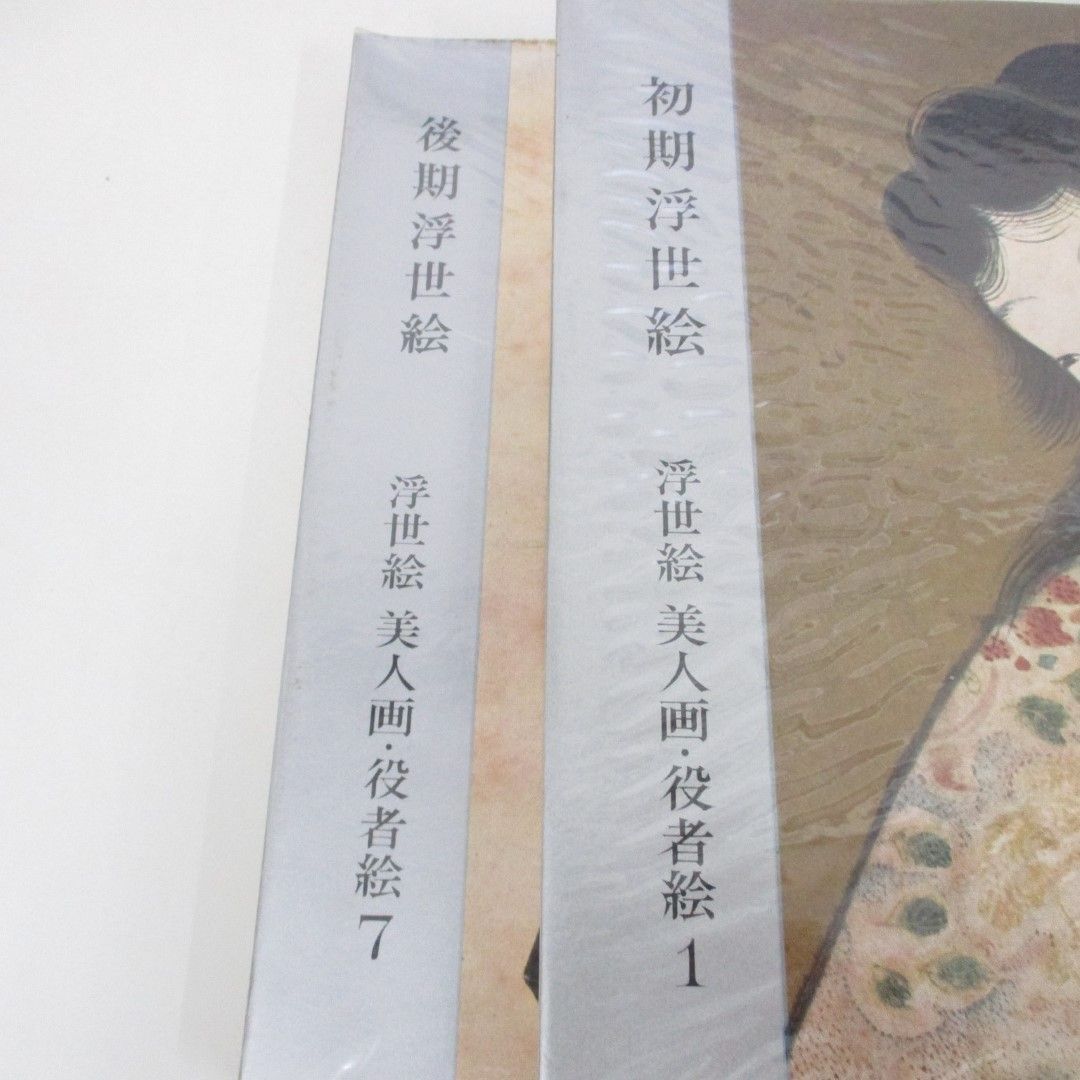 初期浮世絵
浮世絵 美人画・役者絵 1
後期浮世絵
浮世絵 美人画・役者絵 7